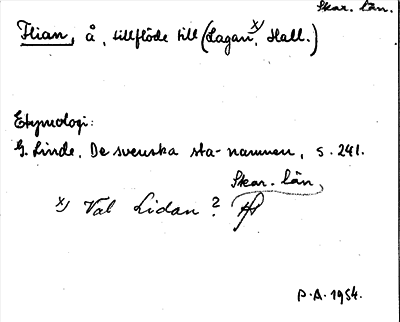 Skar. län.
Flian, å, tillflöde till (Lagan x), Hall.)
Etymologi:
G. Linde, De svenska sta-namnen, s. 241.
Skar. län,
x) Väl Lidan?
P.A. 1954.